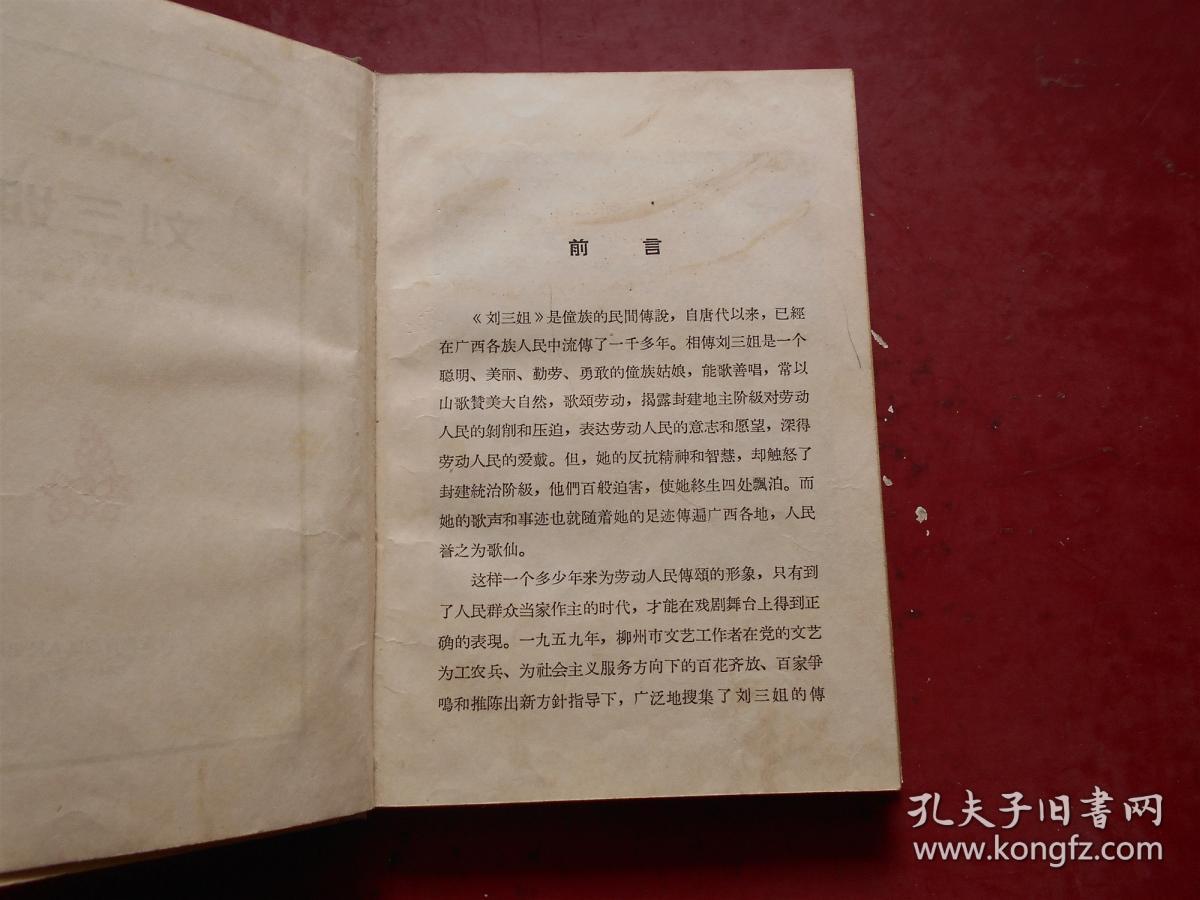 刘三姐
前言
《刘三姐》是僮族的民間傳說，自唐代以来，已經
在广西各族人民中流傳了一千多年。相傳刘三姐是一个
聪明、美丽、勤劳、勇敢的僮族姑娘，能歌善唱，常以
山歌贊美大自然，歌頌劳动，揭露封建地主阶級对劳动
人民的剝削和压迫，表达劳动人民的意志和愿望，深得
劳动人民的爱戴。但，她的反抗精神和智慧，却触怒了
封建統治阶級，他們百般迫害，使她終生四处飄泊。而
她的歌声和事迹也就随着她的足迹傳遍广西各地，人民
誉之为歌仙。
这样一个多少年来为劳动人民傳頌的形象，只有到
了人民群众当家作主的时代，才能在戏剧舞台上得到正
确的表現。一九五九年，柳州市文艺工作者在党的文艺
为工农兵、为社会主义服务方向下的百花齐放、百家爭
鳴和推陈出新方針指导下，广泛地搜集了刘三姐的傳
孔夫子旧書网
www.kongfz.com